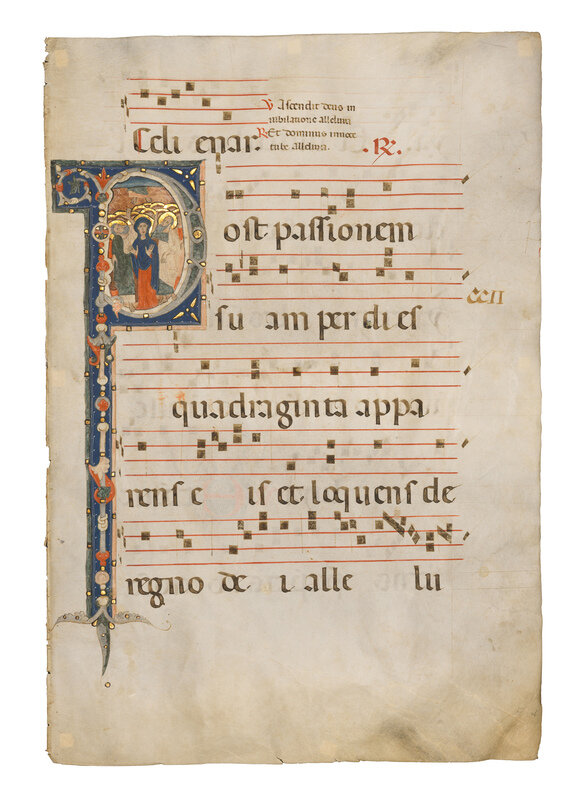 ℣ Ascendit deus in
iubilatione alleluia
Celi enar.
℟ Et dominus in voce
tube alleluia.
.℟.
Post passionem
CCII
su am per di es
quadraginta appa
rens e is et loquens de
regno de i alle lu